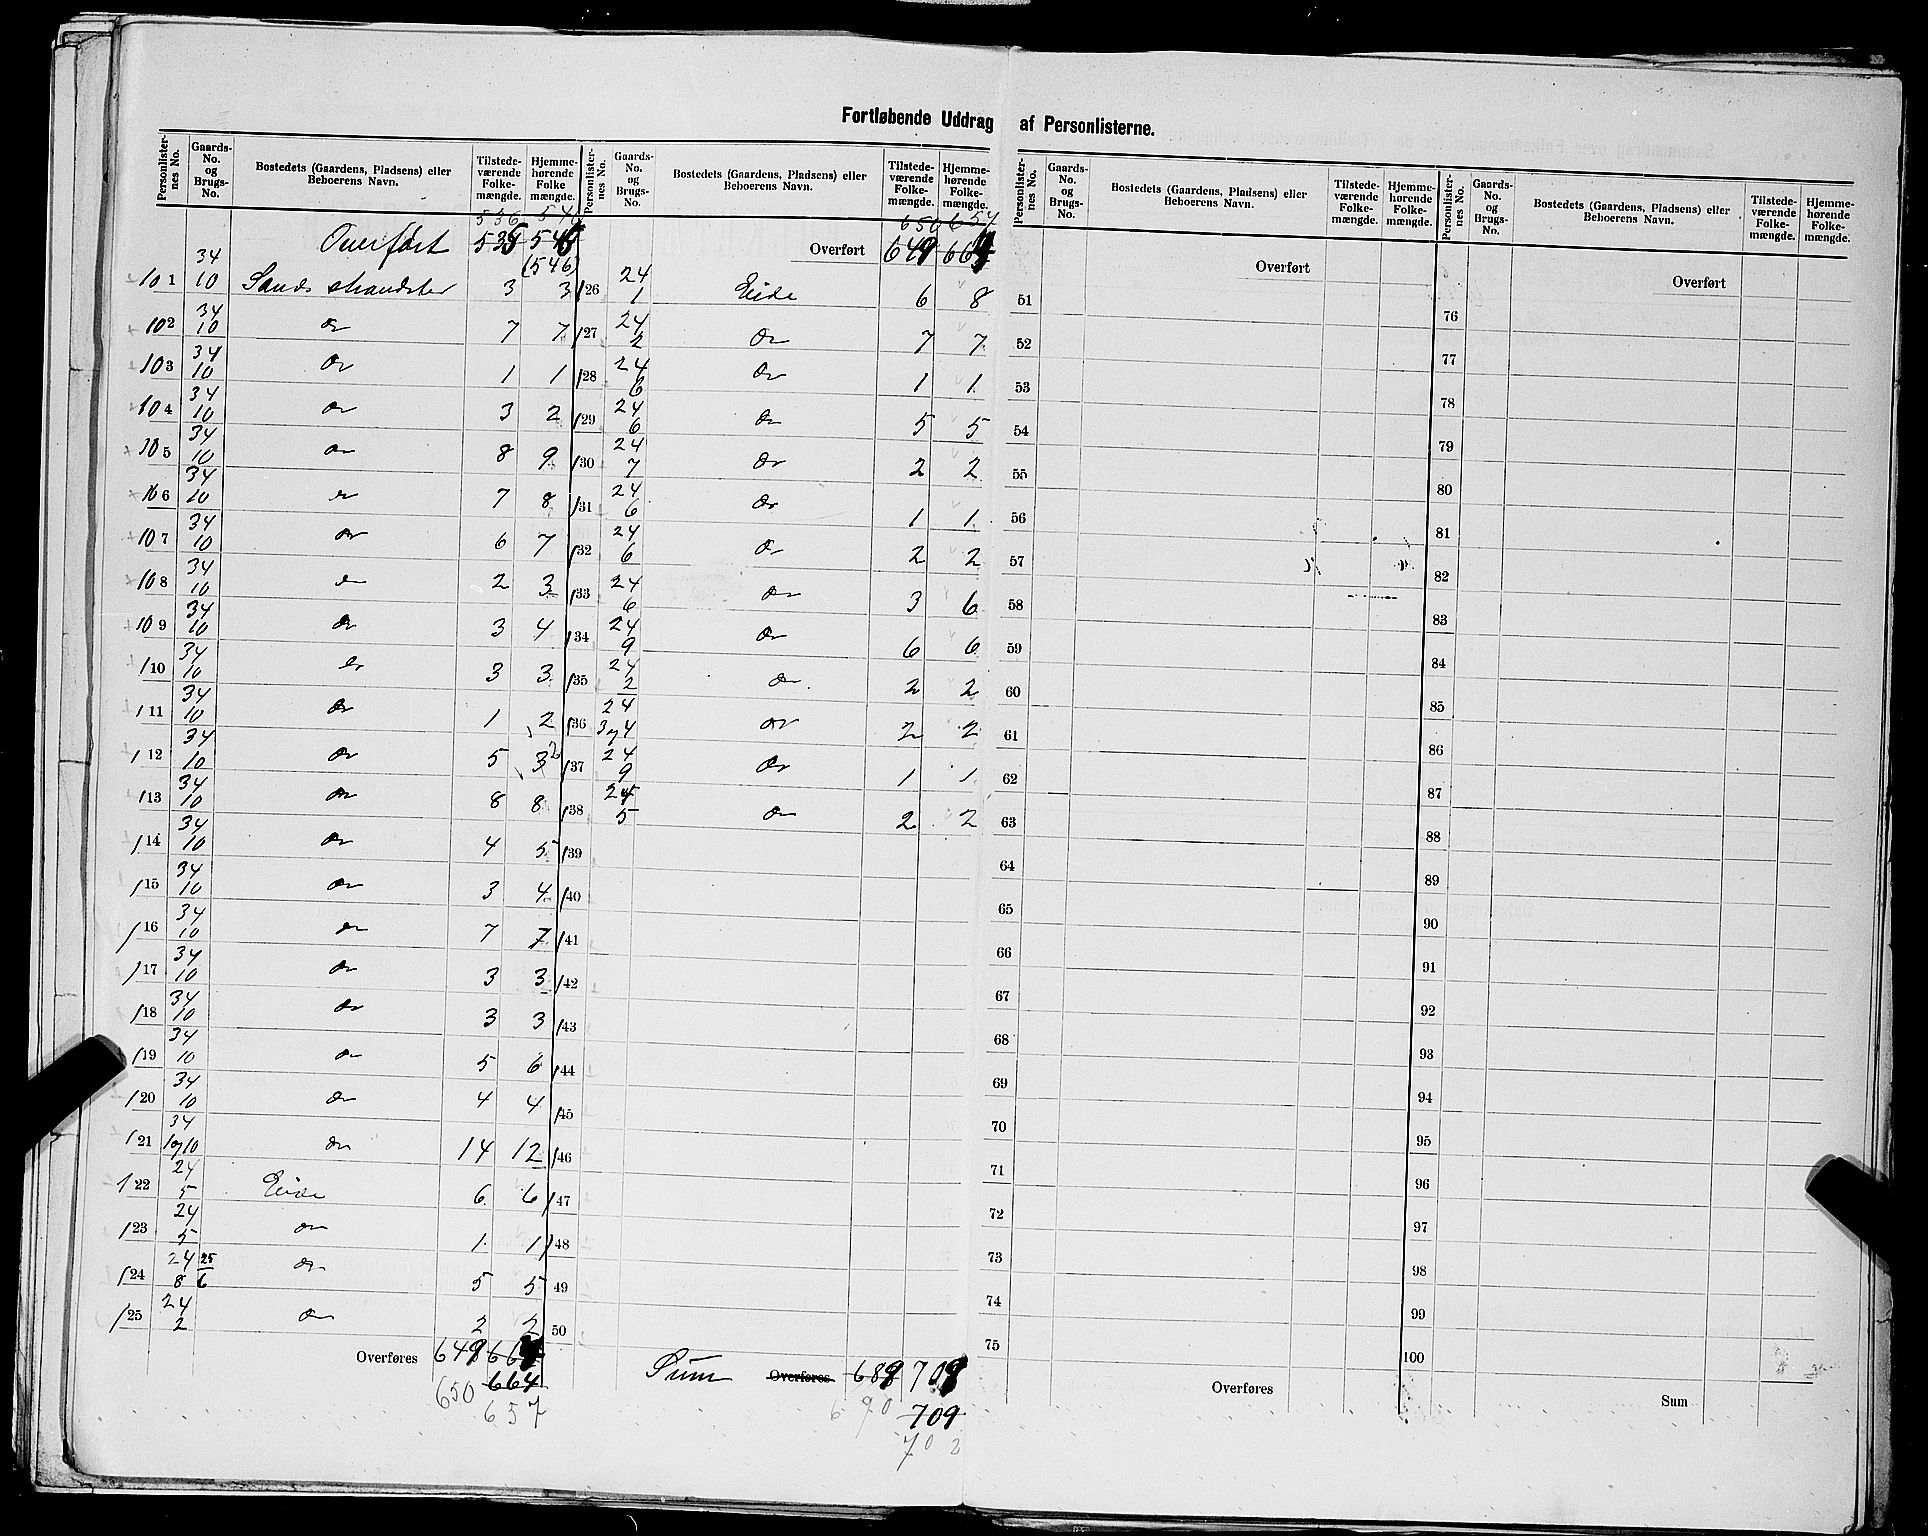 Fortløbende Uddrag af Personlisterne.
Personlister-nes No. | Gaards-No. og Brugs-No. | Bostedets (Gaardens, Pladsens) eller Beboerens Navn. | Tilstede-værende Folke-mængde. | Hjemme-hørende Folke mængde.
536 546
Overført 535
(546)
101 34/10 Sands strandster 3 3
102 34/10 Do 7 7
103 34/10 Do 1 1
104 34/10 Do 3 2
105 34/10 Do 8 9
106 34/10 Do 7 8
107 34/10 Do 6 7
108 34/10 Do 2 3
109 34/10 Do 3 4
110 34/10 Do 3 3
111 34/10 Do 1 2
112 34/10 Do 5 3 2
113 34/10 Do 8 8
114 34/10 Do 4 5
115 34/10 Do 3 4
116 34/10 Do 7 7
117 34/10 Do 3 3
118 34/10 Do 3 3
119 34/10 Do 5 6
120 34/10 Do 4 4
121 34/1og10 Do 14 12
122 24/5 Eide 6 6
123 24/5 Do 1 1
124 24/8 25/6 Do 5 5
125 24/2 Do 2 2
Overføres 649
650 664
657
Personlister-nes No. | Gaards-No. og Brugs-No. | Bostedets (Gaardens, Pladsens) eller Beboerens Navn. | Tilstede-værende Folke-mængde. | Hjemme-hørende Folke-mængde.
650 657
Overført 649
126 24/1 Eide 6 8
127 24/2 Do 7 7
128 24/6 Do 1 1
129 24/6 Do 5 5
130 24/7 Do 2 2
131 24/6 Do 1 1
132 24/6 Do 2 2
133 24/6 Do 3 6
134 24/9 Do 6 6
135 24/2 Do 2 2
136 24/3og4 Do 2 2
137 24/9 Do 1 1
138 24/5 Do 2 2
139
140
141
142
143
144
145
146
147
148
49
50
Sum Overføres 689
690 709
702
Personlister-nes No. | Gaards-No. og Brugs-No. | Bostedets (Gaardens, Pladsens) eller Beboerens Navn. | Tilstede-værende Folke-mængde. | Hjemme-hørende Folke-mængde.
Overført
51
52
53
54
55
56
57
58
59
60
61
62
63
64
65
66
67
68
69
70
71
72
73
74
75
Overføres
Personlister-nes No. | Gaards-No. og Brugs-No. | Bostedets (Gaardens, Pladsens) eller Beboerens Navn. | Tilstede-værende Folke-mængde. | Hjemme-hørende Folke-mængde.
Overført
76
77
78
79
80
81
82
83
84
85
86
87
88
89
90
91
92
93
94
95
96
97
98
99
100
Sum